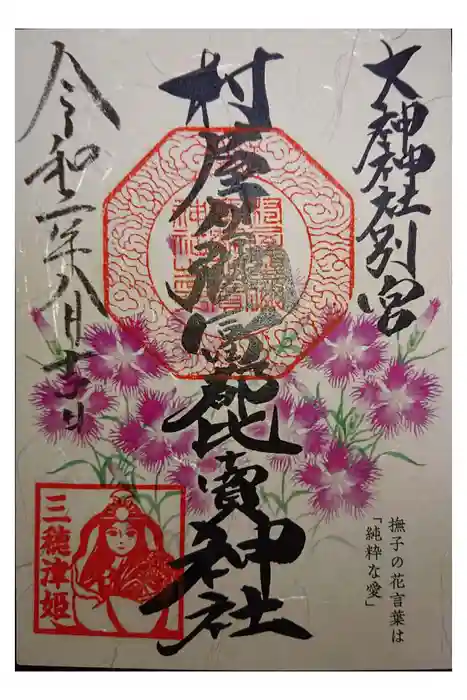 大神神社別宮
村屋坐彌冨都比賣神社
令和二年八月吉日
三穂津姫
撫子の花言葉は
「純粋な愛」